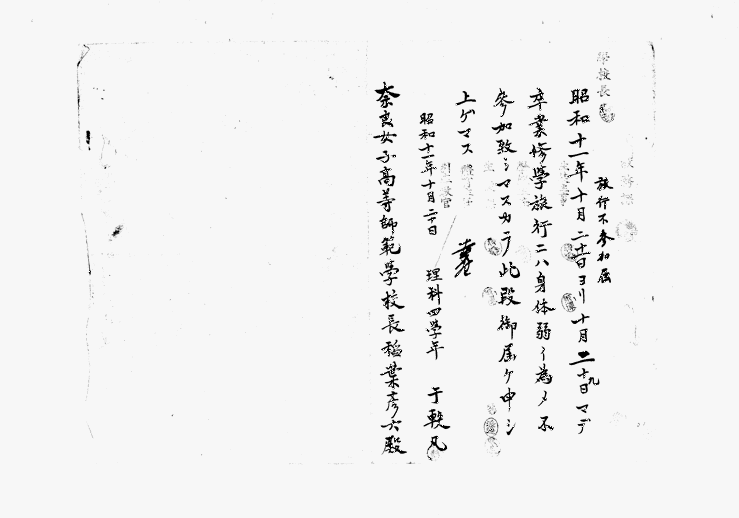 學校長
旅行不參加屆
昭和十一年十月二十日ヨリ十月二十九日マデ
卒業修學旅行ニハ身体弱ク為メ不
參加致シマスカラ此段御屆ケ申シ
上ゲマス
昭和十一年十月二十日
理科四學年 于軼凡
奈良女子高等師範學校長稲葉彦六殿